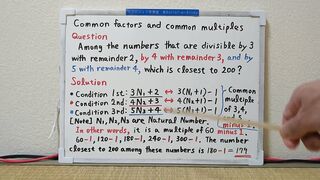 Common factors and common multiples
Question
Among the numbers that are divisible by 3
with remainder 2, by 4 with remainder 3, and by
5 with remainder 4, which is closest to 200?
Solution
• Condition 1st: 3N₁+2 ↔ 3(N₁+1)-1
• Condition 2nd: 4N₂+3 ↔ 4(N₂+1)-1
• Condition 3rd: 5N₃+4 ↔ 5(N₃+1)-1
Common
multiple
of 3, 4,
minus 1.
[Note] N₁, N₂, N₃ are Natural Number.
In other words, it is a multiple of 60 minus 1.
60-1, 120-1, 180-1, 240-1, 300-1. The number
closest to 200 among these numbers is 180-1=179